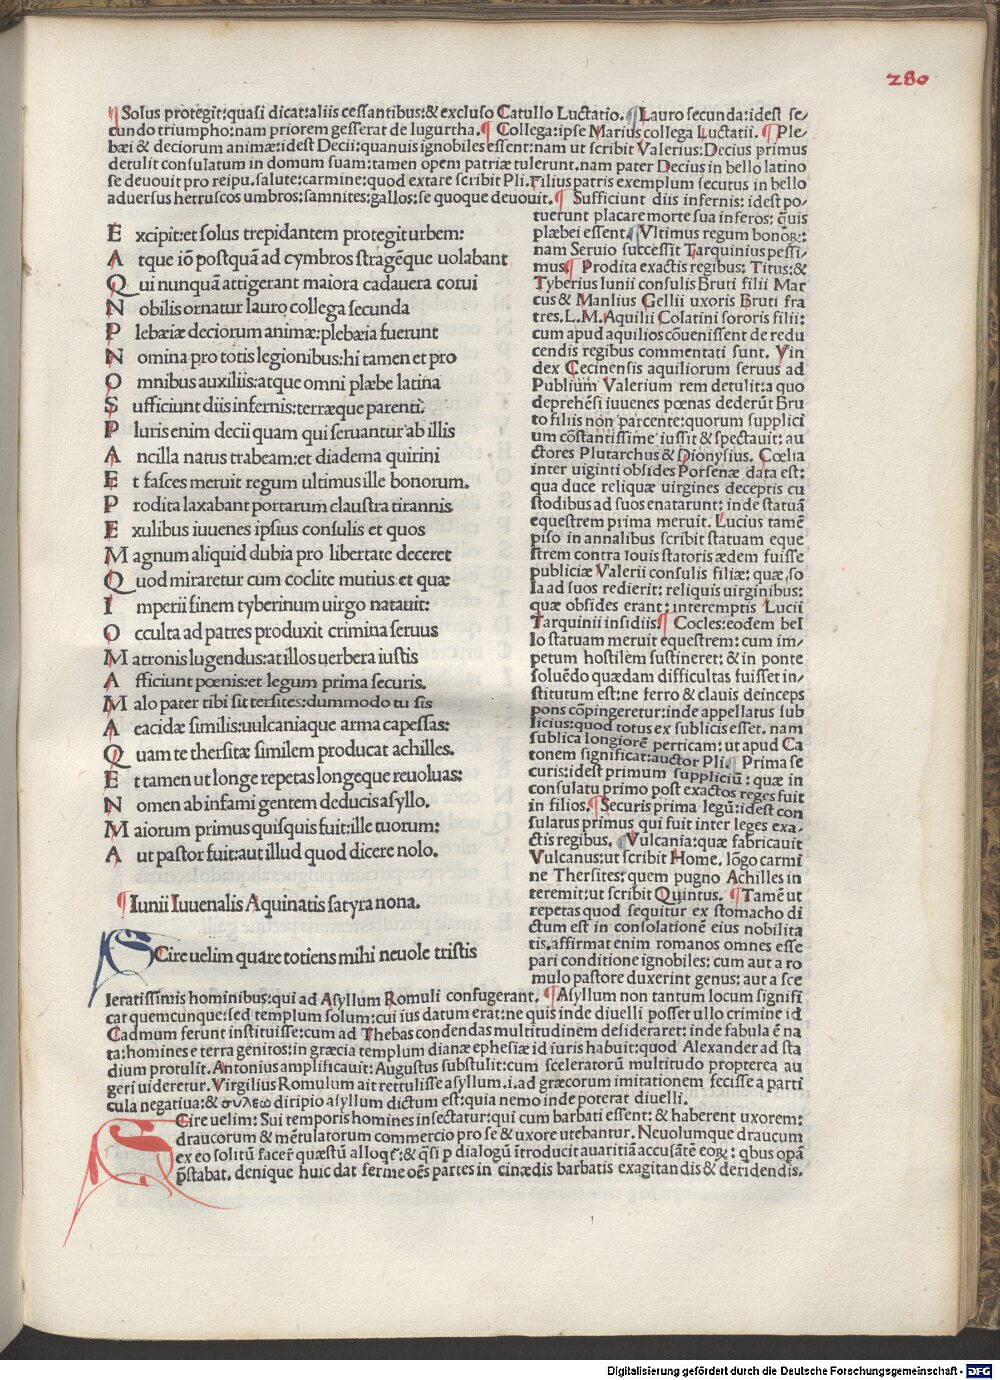 280
¶ Solus protegit:quasi dicat:aliis cessantibus:& excluso Catullo Luctatio. ¶ Lauro secunda:idest se/
cundo triumpho:nam priorem gesserat de Iugurtha. ¶ Collega:ipse Marius collega Luctatii. ¶ Ple/
bæi & deciorum animæ:idest Decii:quanuis ignobiles essent:nam ut scribit Valerius:Decius primus
detulit consulatum in domum suam:tamen opem patriæ tulerunt.nam pater Decius in bello latino
se deuouit pro reipu.salute:carmine:quod extare scribit Pli.Filius patris exemplum secutus in bello
aduersus hetruscos umbros:samnites:gallos:se quoque deuouit. ¶ Sufficiunt diis infernis:idest po/
E xcipit:et solus trepidantem protegit urbem:
A tque iõ postquã ad cymbros stragẽque uolabant
Q ui nunquã attigerant maiora cadauera corui
N obilis ornatur lauro collega secunda
P lebæiæ deciorum animæ:plebæia fuerunt
N omina pro totis legionibus:hi tamen et pro
O mnibus auxiliis:atque omni plæbe latina
S ufficiunt diis infernis:terræque parenti.
P luris enim decii quam qui seruantur ab illis
A ncilla natus trabeam:et diadema quirini
E t fasces meruit regum ultimus ille bonorum.
P rodita laxabant portarum claustra tirannis
E xulibus iuuenes ipsius consulis et quos
M agnum aliquid dubia pro libertate deceret
Q uod miraretur cum coclite mutius et quæ
I mperii finem tyberinum uirgo natauit:
O cculta ad patres produxit crimina seruus
M atronis lugendus:at illos uerbera iustis
A fficiunt pœnis:et legum prima securis.
M alo pater tibi sit tersites:dummodo tu sis
A eacidæ similis:uulcaniaque arma capessas:
Q uam te thersitæ similem producat achilles.
E t tamen ut longe repetas longeque reuoluas:
N omen ab infami gentem deducis asyllo.
M aiorum primus quisquis fuit:ille tuorum:
A ut pastor fuit:aut illud quod dicere nolo.
¶ Iunii Iuuenalis Aquinatis satyra nona.
SCire uelim quare totiens mihi neuole tristis
tuerunt placare morte sua inferos: q̃uis
plæbei essent. ¶ Vltimus regum bonoꝝ:
nam Seruio successit Tarquinius pessi/
mus ¶ Prodita exactis regibus: Titus:&
Tyberius Iunii consulis Bruti filii Mar
cus & Manlius Gellii uxoris Bruti fra
tres.L.M.Aquilii Colatini sororis filii:
cum apud aquilios cõuenissent de redu
cendis regibus commentati sunt. Vin
dex Cecinensis aquiliorum seruus ad
Publium Valerium rem detulit:a quo
deprehẽsi iuuenes pœnas dederũt Bru
to filiis non parcente:quorum supplici
um cõstantissime iussit & spectauit: au
ctores Plutarchus & Dionysius. Cœlia
inter uiginti obsides Porsenæ data est:
qua duce reliquæ uirgines deceptis cu
stodibus ad suos enatarunt: inde statuã
equestrem prima meruit. Lucius tamẽ
piso in annalibus scribit statuam eque
strem contra Iouis statoris ædem fuisse
publiciæ Valerii consulis filiæ: quæ,so
la ad suos redierit: reliquis uirginibus:
quæ obsides erant: interemptis Lucii
Tarquinii insidiis. ¶ Cocles:eodem bel
lo statuam meruit equestrem: cum im/
petum hostilem sustineret: & in ponte
soluẽdo quædam difficultas fuisset in/
stitutum est:ne ferro & clauis deinceps
pons cõpingeretur:inde appellatus sub
licius:quod totus ex sublicis esset. nam
sublica longiorẽ perticam: ut apud Ca
tonem significat:auctor Pli. ¶ Prima se
curis:idest primum suppliciũ: quæ in
consulatu primo post exactos reges fuit
in filios. ¶ Securis prima legũ:idest con
sulatus primus qui fuit inter leges exa/
ctis regibus. ¶ Vulcania:quæ fabricauit
Vulcanus:ut scribit Home. lõgo carmi
ne Thersites: quem pugno Achilles in
teremit:ut scribit Quintus. ¶ Tamẽ ut
repetas quod sequitur ex stomacho di
ctum est in consolationẽ eius nobilita
tis.affirmat enim romanos omnes esse
pari conditione ignobiles: cum aut a ro
mulo pastore duxerint genus: aut a sce
leratissimis hominibus:qui ad Asyllum Romuli confugerant. ¶ Asyllum non tantum locum signifi
cat quemcunque:sed templum solum:cui ius datum erat:ne quis inde diuelli posset ullo crimine id
Cadmum ferunt instituisse:cum ad Thebas condendas multitudinem desideraret: inde fabula ẽ na
ta:homines e terra genitos:in græcia templum dianæ ephesiæ id iuris habuit:quod Alexander ad sta
dium protulit. Antonius amplificauit: Augustus substulit: cum sceleratorũ multitudo propterea au
geri uideretur. Virgilius Romulum ait rettulisse asyllum.i.ad græcorum imitationem fecisse a parti
cula negatiua:& συλεω diripio asyllum dictum est:quia nemo inde poterat diuelli.
SCire uelim: Sui temporis homines insectatur:qui cum barbati essent: & haberent uxorem:
draucorum & mẽtulatorum commercio pro se & uxore utebantur. Neuolumque draucum
ex eo solitũ facer̃ quæstũ alloqt̃:& q̃si p dialogũ ĩtroducit auaritiã accusãtẽ eoꝝ: qbus opã
p̃stabat. denique huic dat ferme oẽs partes in cinædis barbatis exagitandis & deridendis.
Digitalisierung gefördert durch die Deutsche Forschungsgemeinschaft - DFG